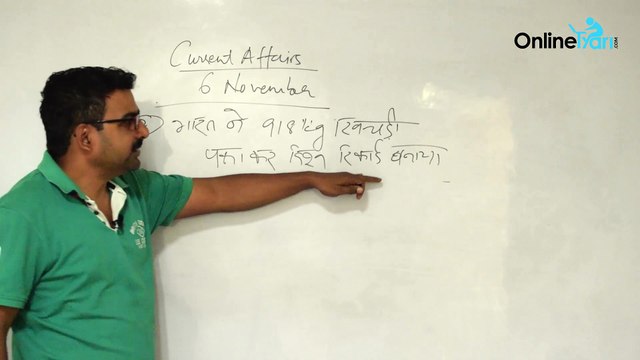 OnlineTyari.com
Current Affairs
6 November
भारत ने 918 kg खिचड़ी
पका कर विश्व रिकार्ड बनाया